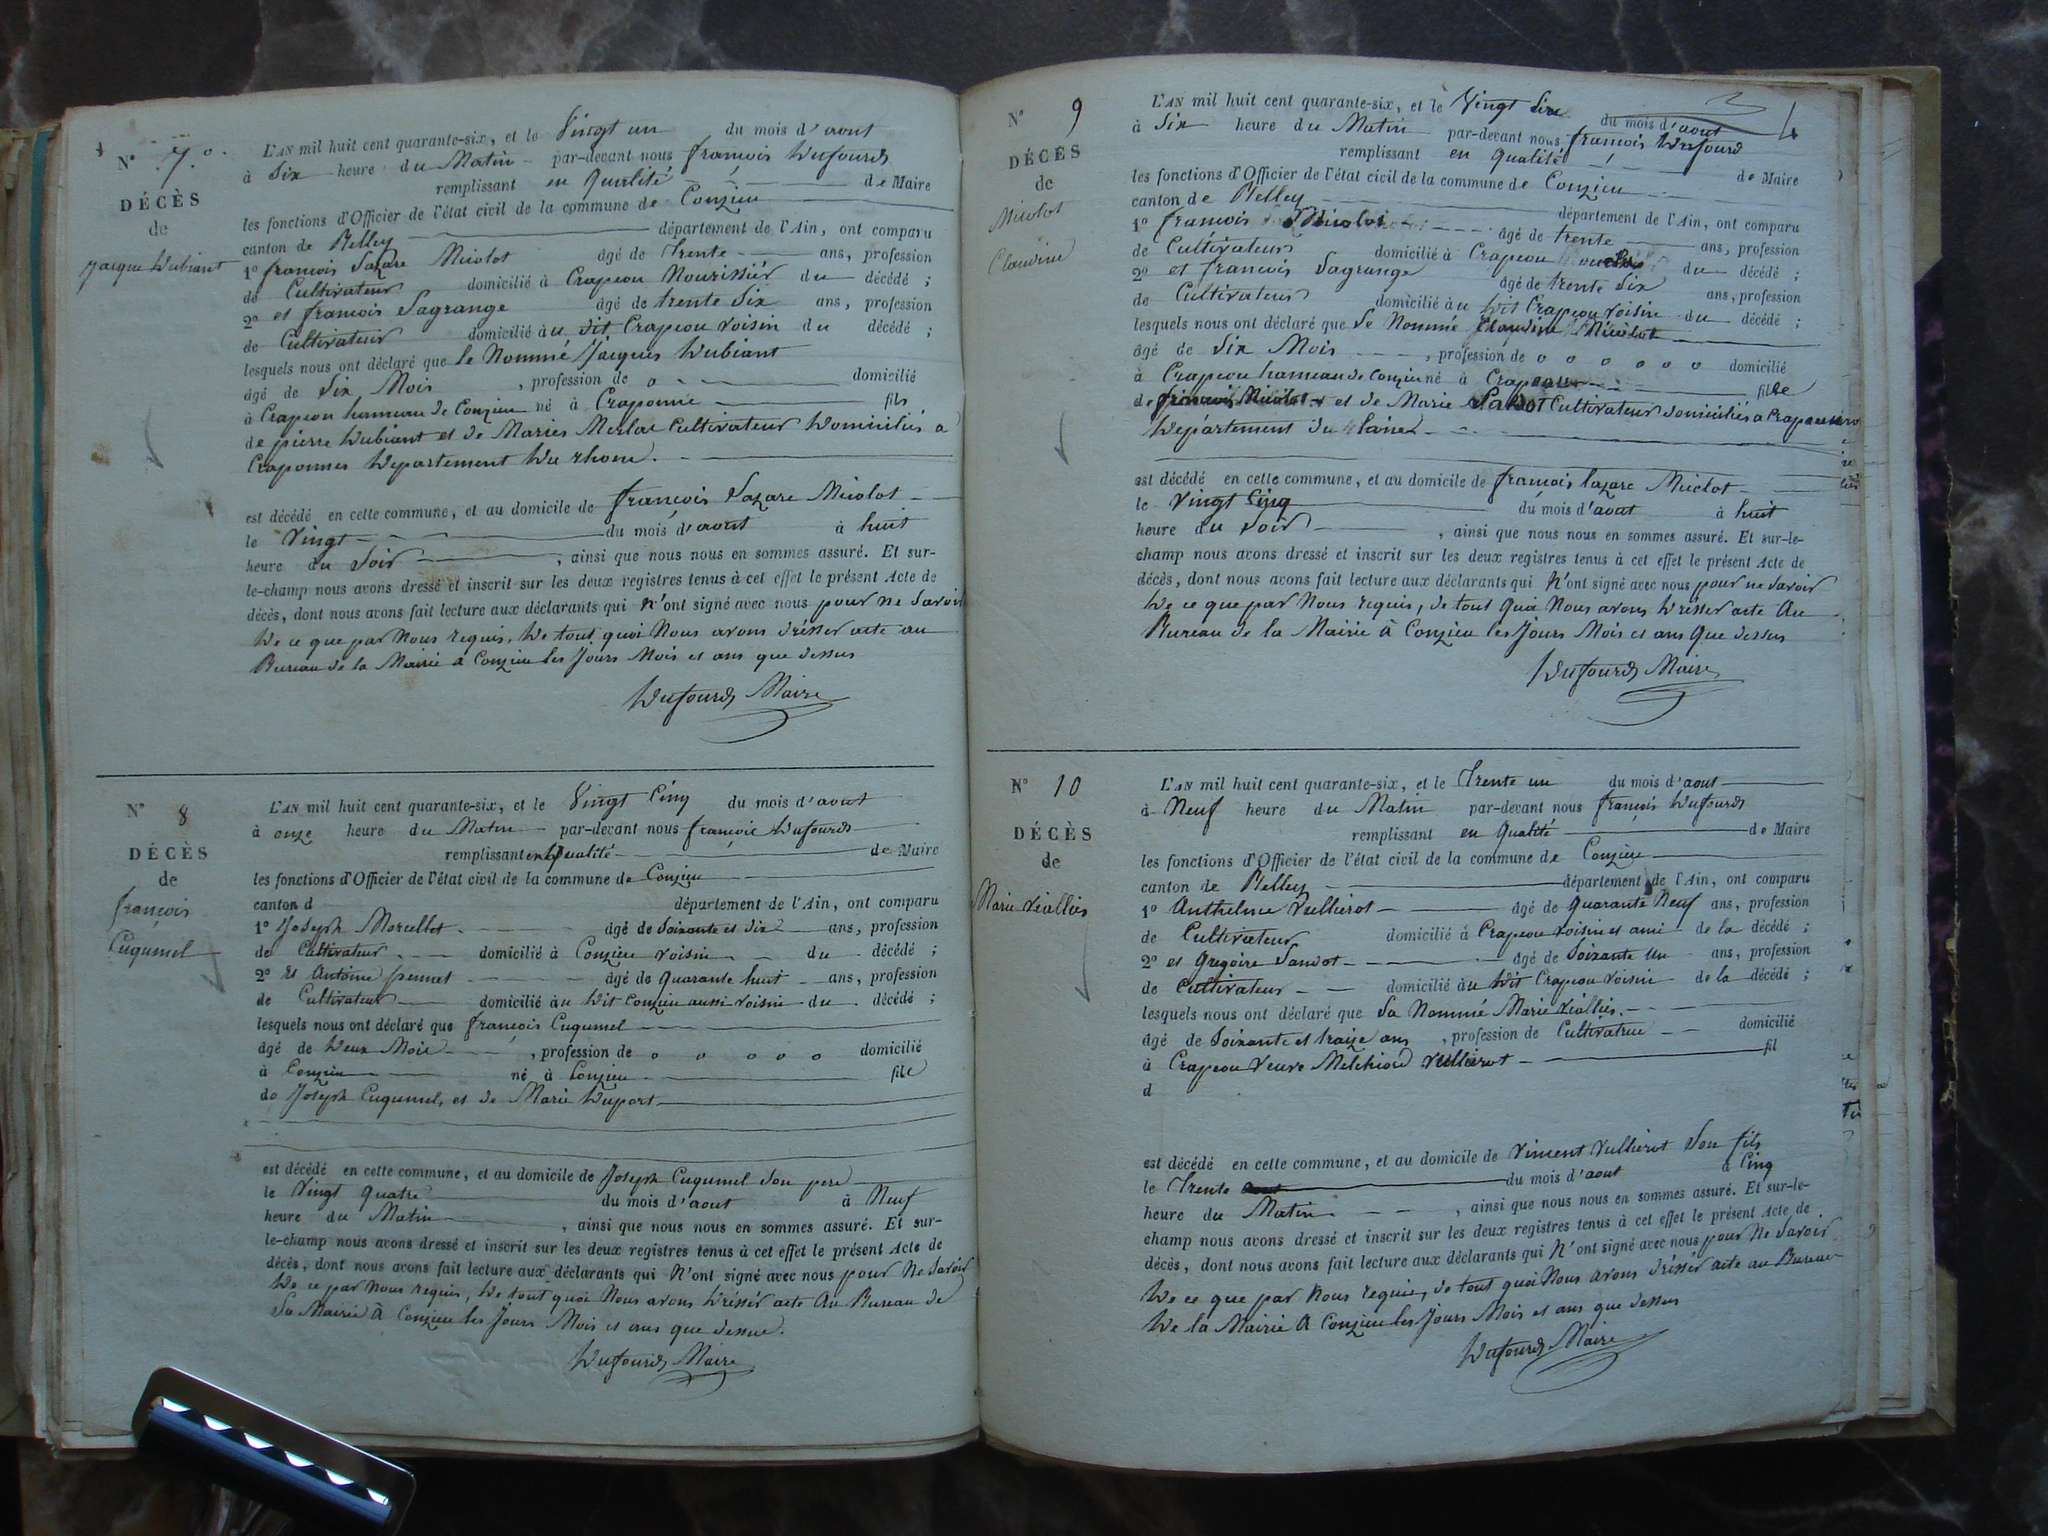 N° 7°.
DÉCÈS
de
Jacque Dubiant
L'AN mil huit cent quarante-six, et le Vingt un du mois d'aout
à Six heure du Matin par-devant nous françois Dufourd
remplissant en Qualité de Maire
les fonctions d'Officier de l'état civil de la commune de Conzieu
canton de Belley département de l'Ain, ont comparu
1° françois Lazare Micolot âgé de Trente ans, profession
de Cultivateur domicilié à Crapeou Nourissier du décédé ;
2° et francois Lagrange âgé de trente Six ans, profession
de Cultivateur domicilié àu dit Crapeou voisin du décédé ;
lesquels nous ont déclaré que le Nommé Jacques Dubiant
âgé de Six Mois , profession de o domicilié
à Crapeou hameau de Conzieu né à Craponne fils
de pierre Dubiant et de Maries Merlat Cultivateur Domiciliés a
Craponnes Departement Du rhone.
est décédé en cette commune, et au domicile de françois Lazare Micolot
le Vingt du mois d'aout à huit
heure du Soir , ainsi que nous nous en sommes assuré. Et sur-
le-champ nous avons dressé et inscrit sur les deux registres tenus à cet effet le présent Acte de
décès, dont nous avons fait lecture aux déclarants qui N'ont signé avec nous pour ne Savoir
De ce que par Nous requis, De tout quoi Nous avons drésser acte au
Bureau de la Mairie a Conzieu les Jours Mois et ans que dessus
Dufourd Maire
N° 8
DÉCÈS
de
françois
Cugumel
L'AN mil huit cent quarante-six, et le Vingt Cinq du mois d'aout
à onze heure du Matin par-devant nous francois Dufourd
remplissant en Qualité de Maire
les fonctions d'Officier de l'état civil de la commune de Conzieu
canton d département de l'Ain, ont comparu
1° Joseph Marcellot âgé de Soixante et Dix ans, profession
de Cultivateur domicilié à Conzieu voisin du décédé ;
2° Et Antoine pennet âgé de Quarante huit ans, profession
de Cultivateur domicilié àu Dit Conzieu aussi voisin du décédé ;
lesquels nous ont déclaré que françois Cugumel
âgé de Deux Mois , profession de o o o o o domicilié
à Conzieu né à Conzieu file
de Joseph Cugumel, et de Marie Duport
est décédé en cette commune, et au domicile de Joseph Cugumel Son pere
le Vingt Quatre du mois d'aout à Neuf
heure du Matin , ainsi que nous nous en sommes assuré. Et sur-
le-champ nous avons dressé et inscrit sur les deux registres tenus à cet effet le présent Acte de
décès, dont nous avons fait lecture aux déclarants qui N'ont signé avec nous pour Ne Savoir
De ce par Nous requis, De tout quoi Nous avons Drésser acte Au Bureau de
La Mairie à Conzieu les Jours Mois et ans que dessus.
Dufourd Maire
N° 9
DÉCÈS
de
Micolot
Claudine
4
L'AN mil huit cent quarante-six, et le Vingt Six du mois d'aout
à Six heure du Matin par-devant nous francois Dufourd
remplissant en Qualité de Maire
les fonctions d'Officier de l'état civil de la commune de Conzieu
canton de Belley département de l'Ain, ont comparu
1° francois Micolot âgé de trente ans, profession
de Cultivateur domicilié à Crapeou du décédé ;
2° et francois Lagrange âgé de trente Six ans, profession
de Cultivateur domicilié àu Dit Crapeou voisin du décédé ;
lesquels nous ont déclaré que Le Nommée Claudine Micolot
âgé de Six Mois , profession de o o o o o o domicilié
à Crapeou hameau de Conzieu né à Crapeou fille
de francois Micolot et de Marie Sandot Cultivateur Domiciliés a Crapeou
Département du
est décédé en cette commune, et au domicile de françois lazare Miclot
le Vingt Cinq du mois d'aout à huit
heure du Soir , ainsi que nous nous en sommes assuré. Et sur-le-
champ nous avons dressé et inscrit sur les deux registres tenus à cet effet le présent Acte de
décès, dont nous avons fait lecture aux déclarants qui N'ont signé avec nous pour ne Savoir
De ce que par Nous requis, de tout Quoi Nous avons Drésser acte Au
Bureau de la Mairie à Conzieu les Jours Mois et ans Que dessus
Dufourd Maire
N° 10
DÉCÈS
de
Marie Viallies
L'AN mil huit cent quarante-six, et le Trente un du mois d'aout
à Neuf heure du Matin par-devant nous françois Dufourd
remplissant en Qualité de Maire
les fonctions d'Officier de l'état civil de la commune de Conzieu
canton de Belley département de l'Ain, ont comparu
1° Anthelme Vullierot âgé de Quarante Neuf ans, profession
de Cultivateur domicilié à Crapeou voisin et ami de la décédé ;
2° et Gregoire Sandot âgé de Soixante Un ans, profession
de Cultivateur domicilié àu Dit Crapeou voisin de la décédé ;
lesquels nous ont déclaré que La Nommé Marie Viallies.
âgé de Soixante et traize ans , profession de Cultivatrue domicilié
à Crapeou Veuve Melchiord Vullierot fil
d
est décédé en cette commune, et au domicile de Vincent Vullierot Son fils
le Trente du mois d'aout à Cinq
heure du Matin , ainsi que nous nous en sommes assuré. Et sur-le-
champ nous avons dressé et inscrit sur les deux registres tenus à cet effet le présent Acte de
décès, dont nous avons fait lecture aux déclarants qui N'ont signé avec nous pour Ne Savoir
De ce que par Nous requis, de tout quoi Nous avons drésser acte au Bureau
De la Mairie A Conzieu les Jours Mois et ans que dessus
Dufourd Maire